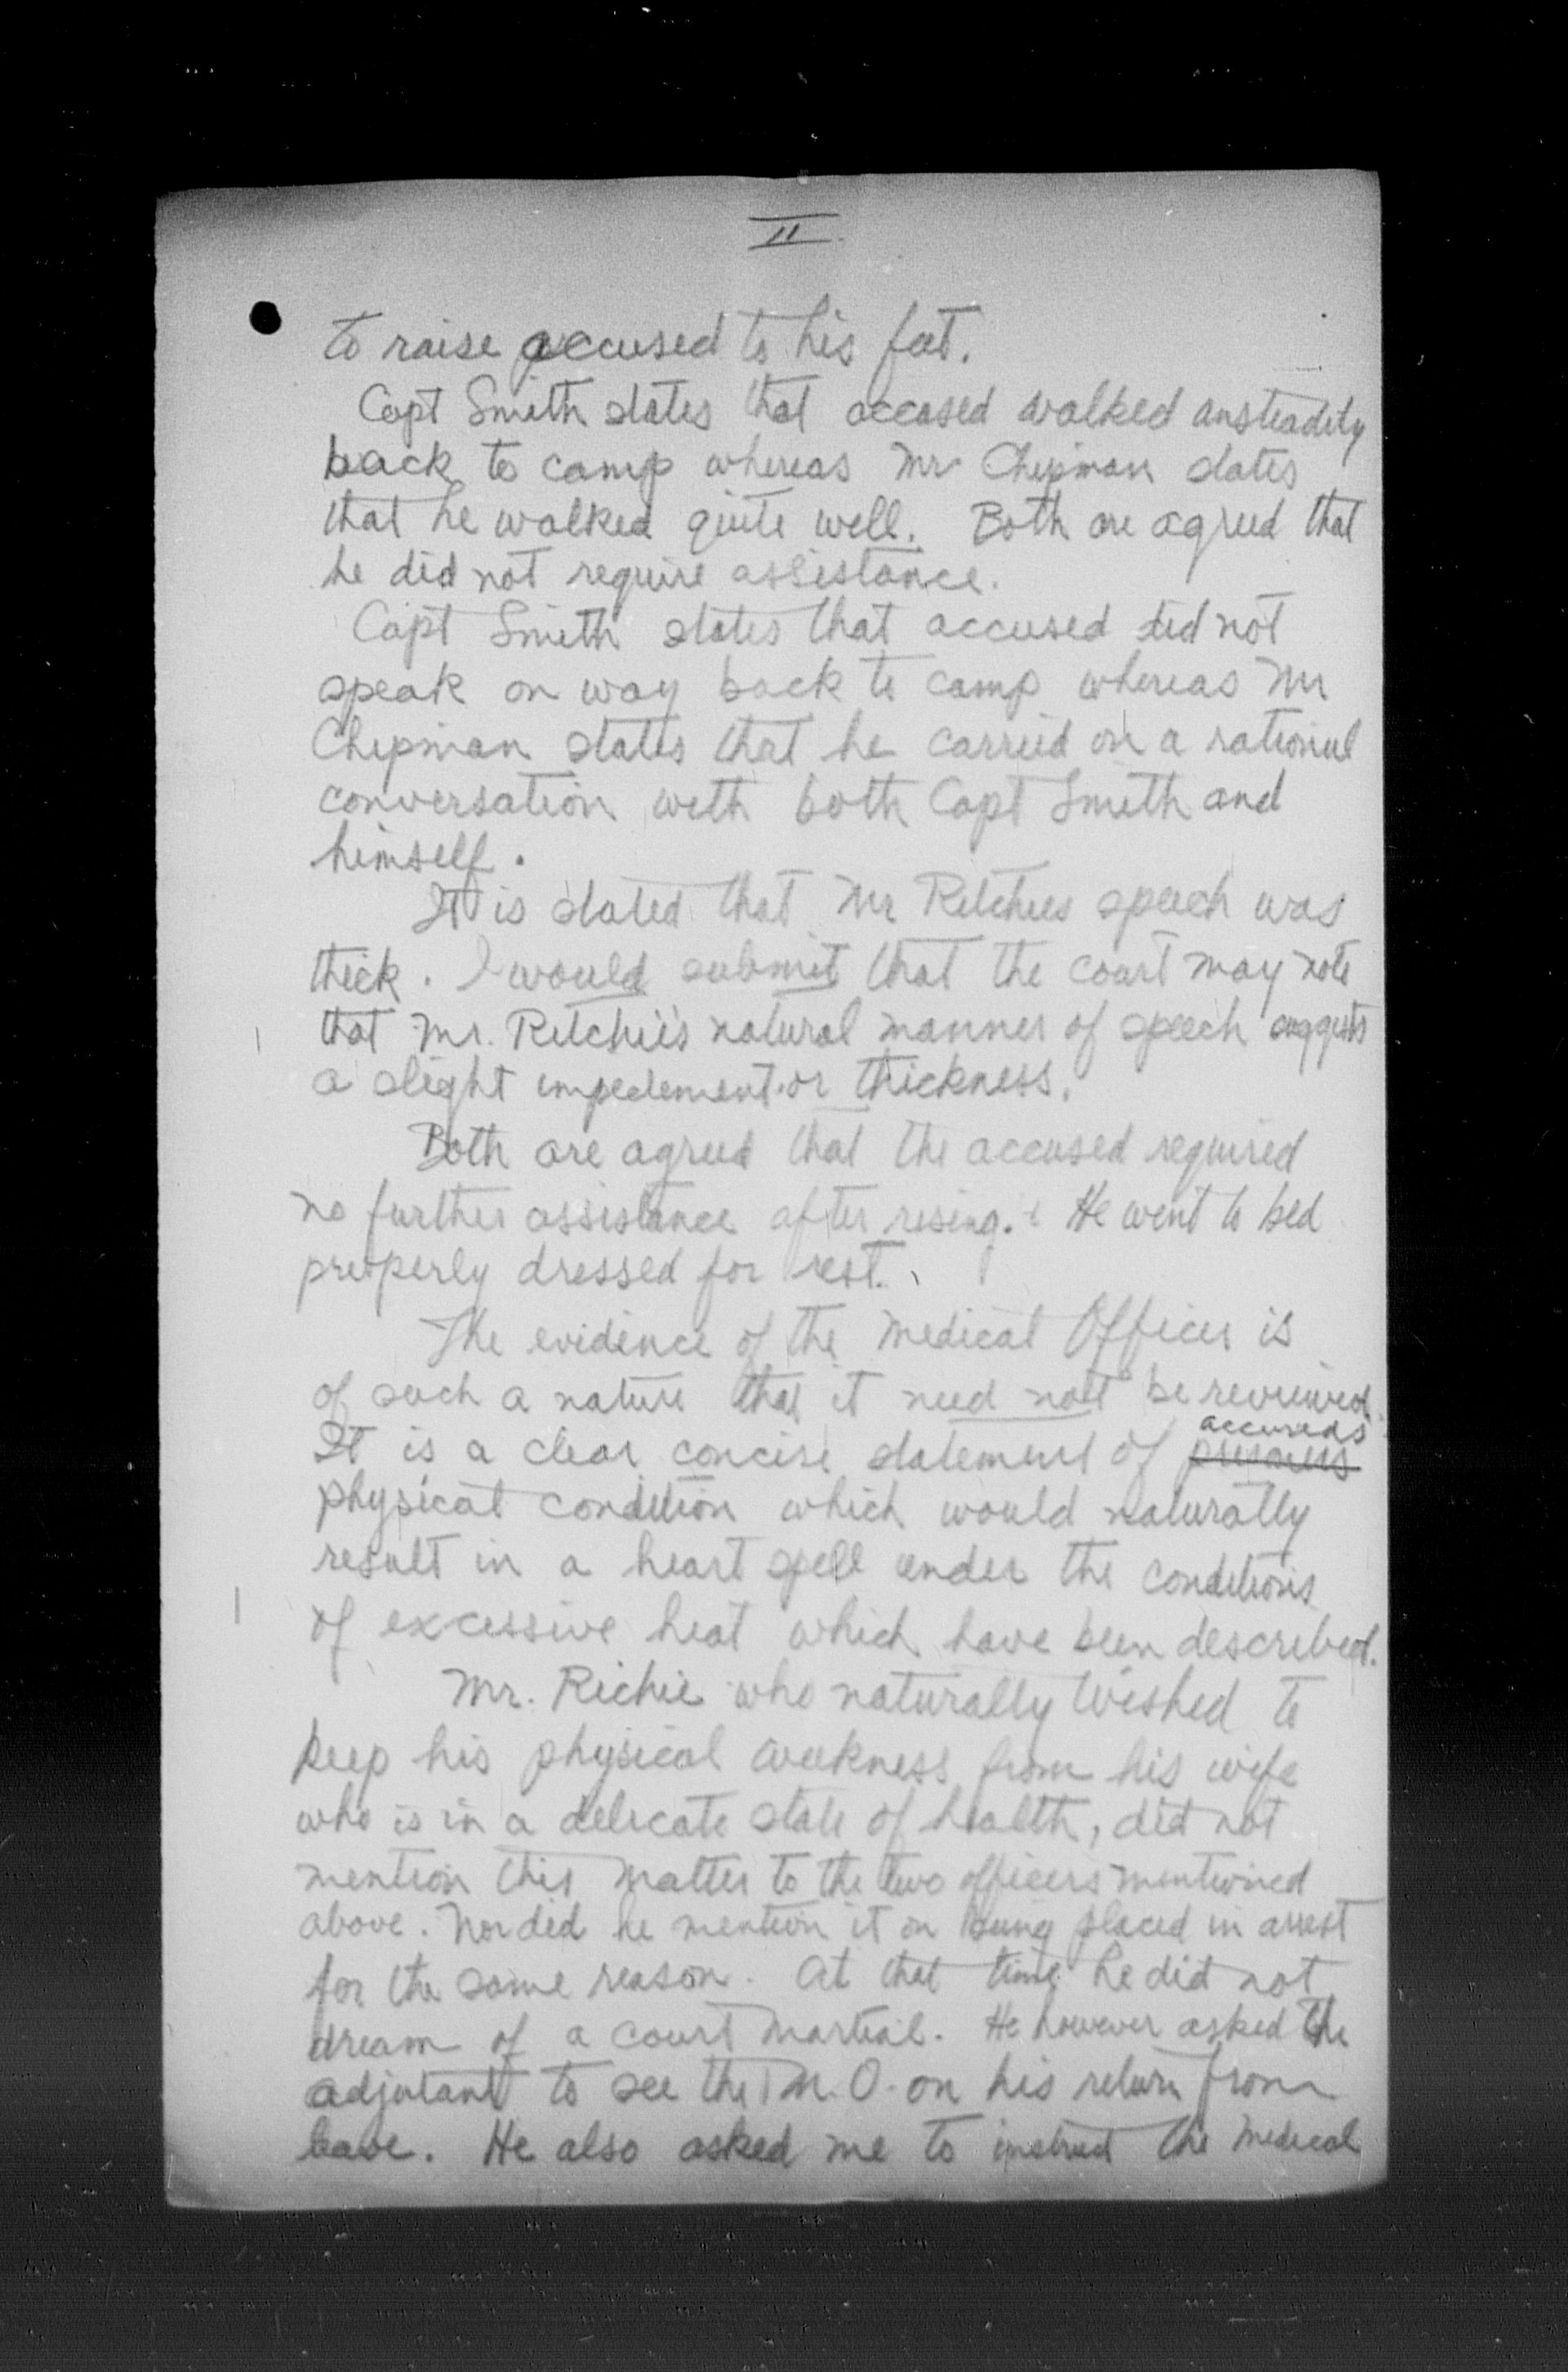 II
to raise accused to his feet.
Capt Smith states that accused walked unsteadily
back to camp whereas Mr Chipman states
that he walked quite well. Both are agreed that
he did not require assistance.
Capt Smith states that accused did not
speak on way back to camp whereas Mr
Chipman states that he carried on a rational
conversation with both Capt Smith and
himself.
It is stated that Mr Ritchies speech was
thick. I would submit that the court may note
that Mr. Ritchie's natural manner of speech suggests
a slight impediment or thickness.
Both are agreed that the accused required
no further assistance after rising. He went to bed
properly dressed for rest.
The evidence of the Medical Officer is
of such a nature that it need not be reviewed.
accuseds
It is a clear concise statement of prisoners
physical condition which would naturally
result in a heart spell under the conditions
of excessive heat which have been described.
Mr. Richie who naturally wished to
keep his physical weakness from his wife
who is in a delicate state of health, did not
mention this matter to the two officers mentioned
above. Nor did he mention it on being placed in arrest
for the same reason. At that time he did not
dream of a court martial. He however asked the
adjutant to see the M.O. on his return from
leave. He also asked me to instruct the medical